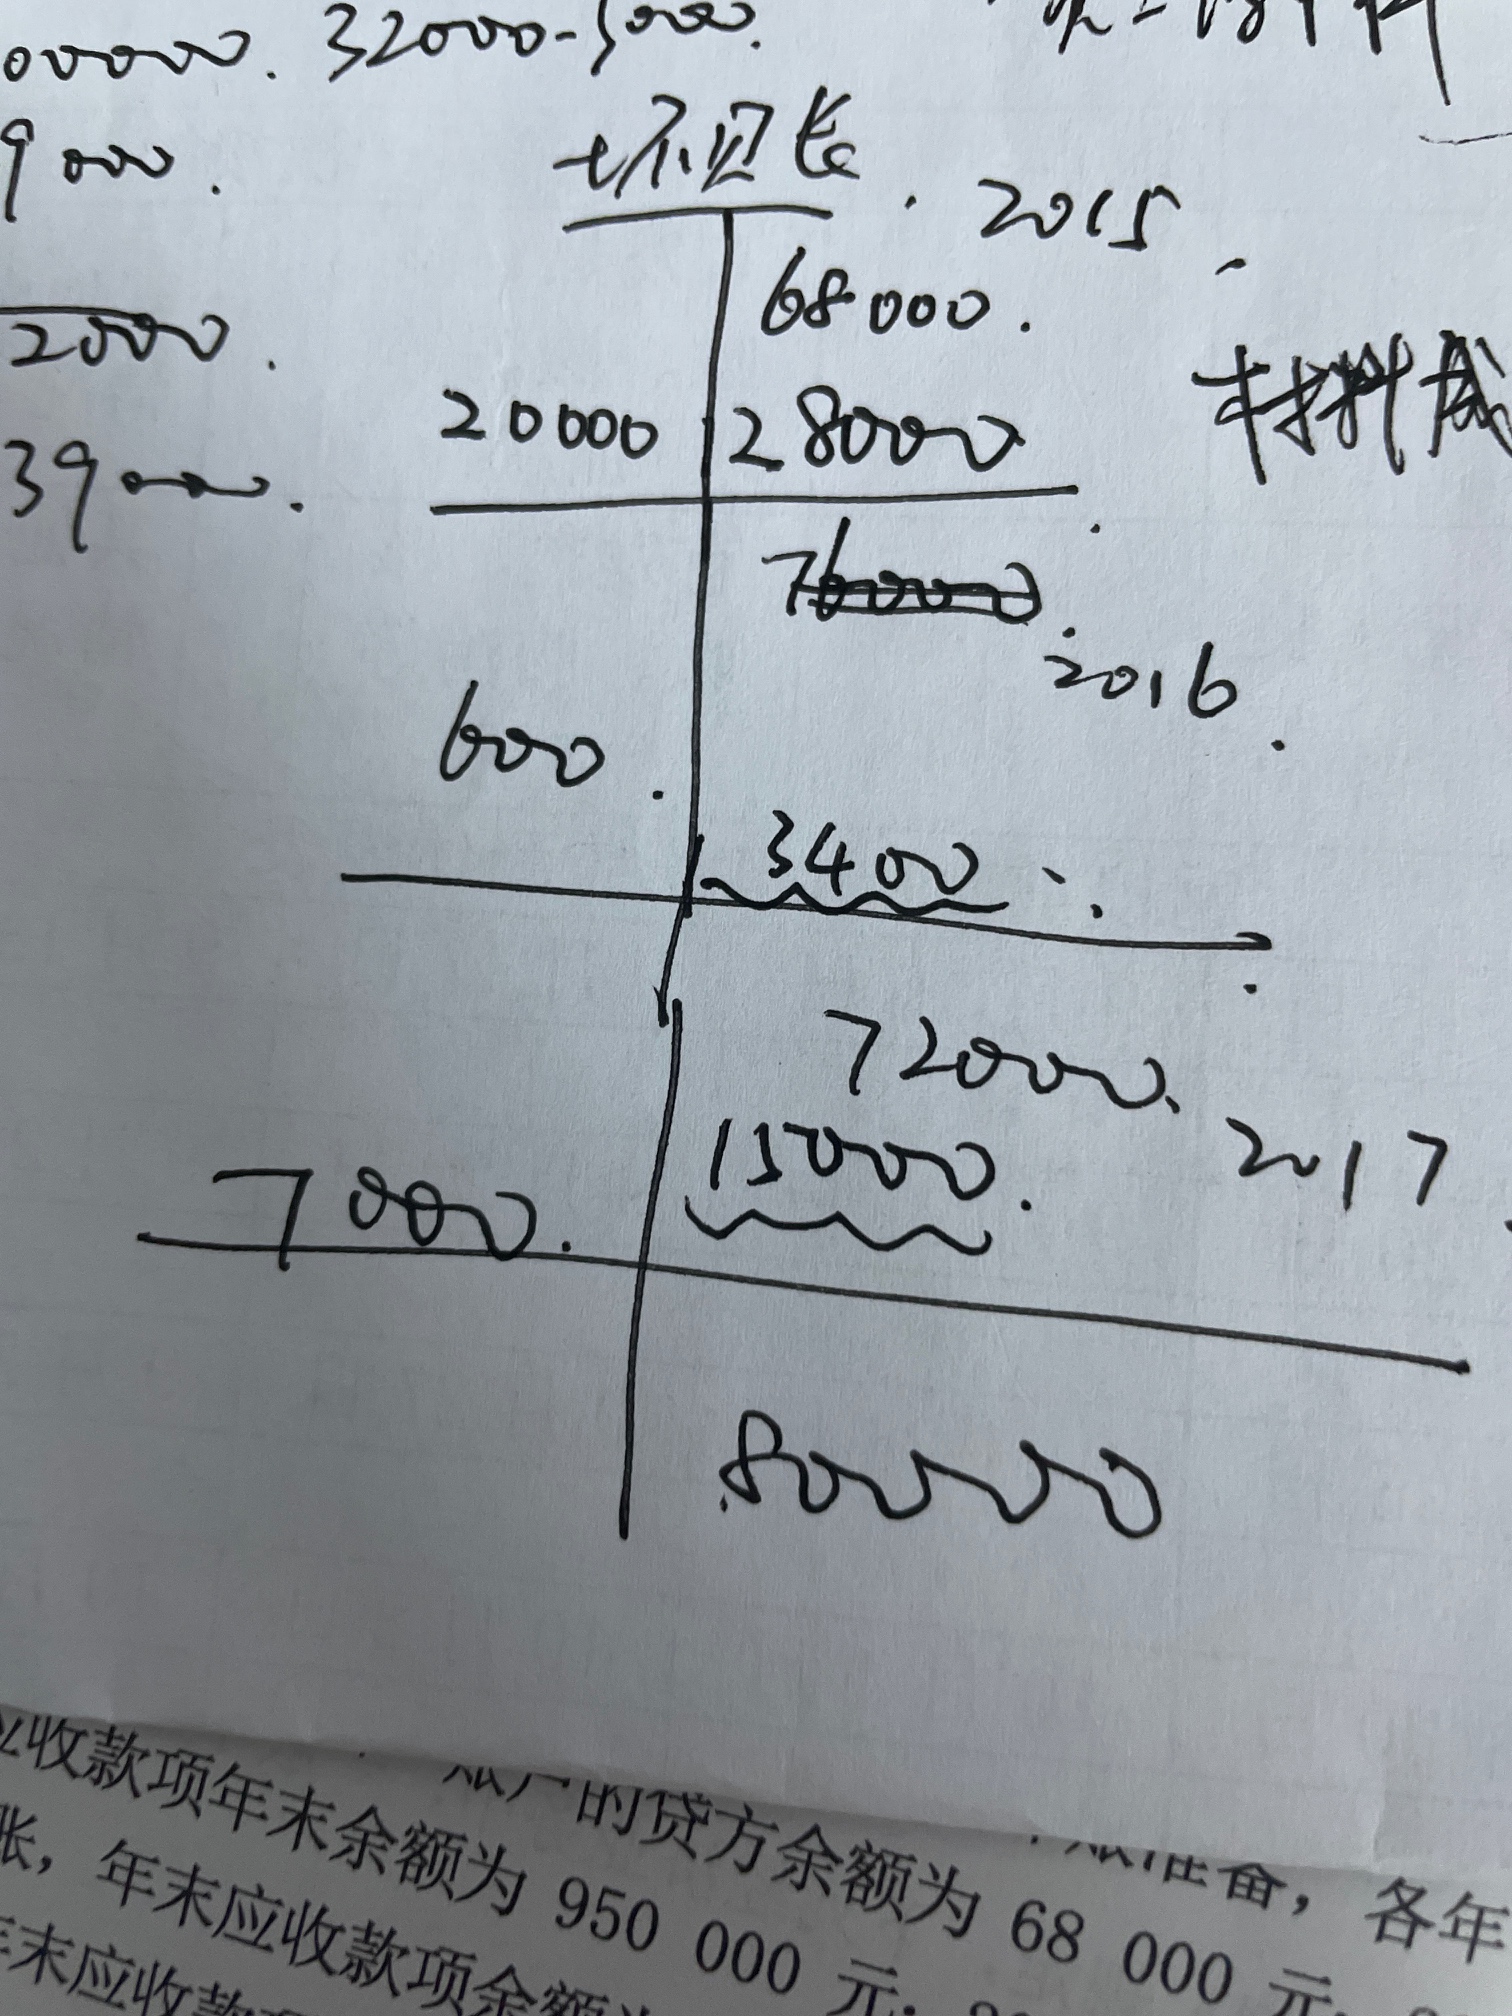 00000. 32000-5000.
9000.
坏贝长. 2015.
68000.
2000.
20000 28000
39000.
76000.
2016.
600.
3400
72000.
15000. 2017
7000.
80000
账户的贷方余额为 68 000 元.
备，各年
应收款项年末余额为 950 000 元.
账，年末应收款项余额为
末应收款